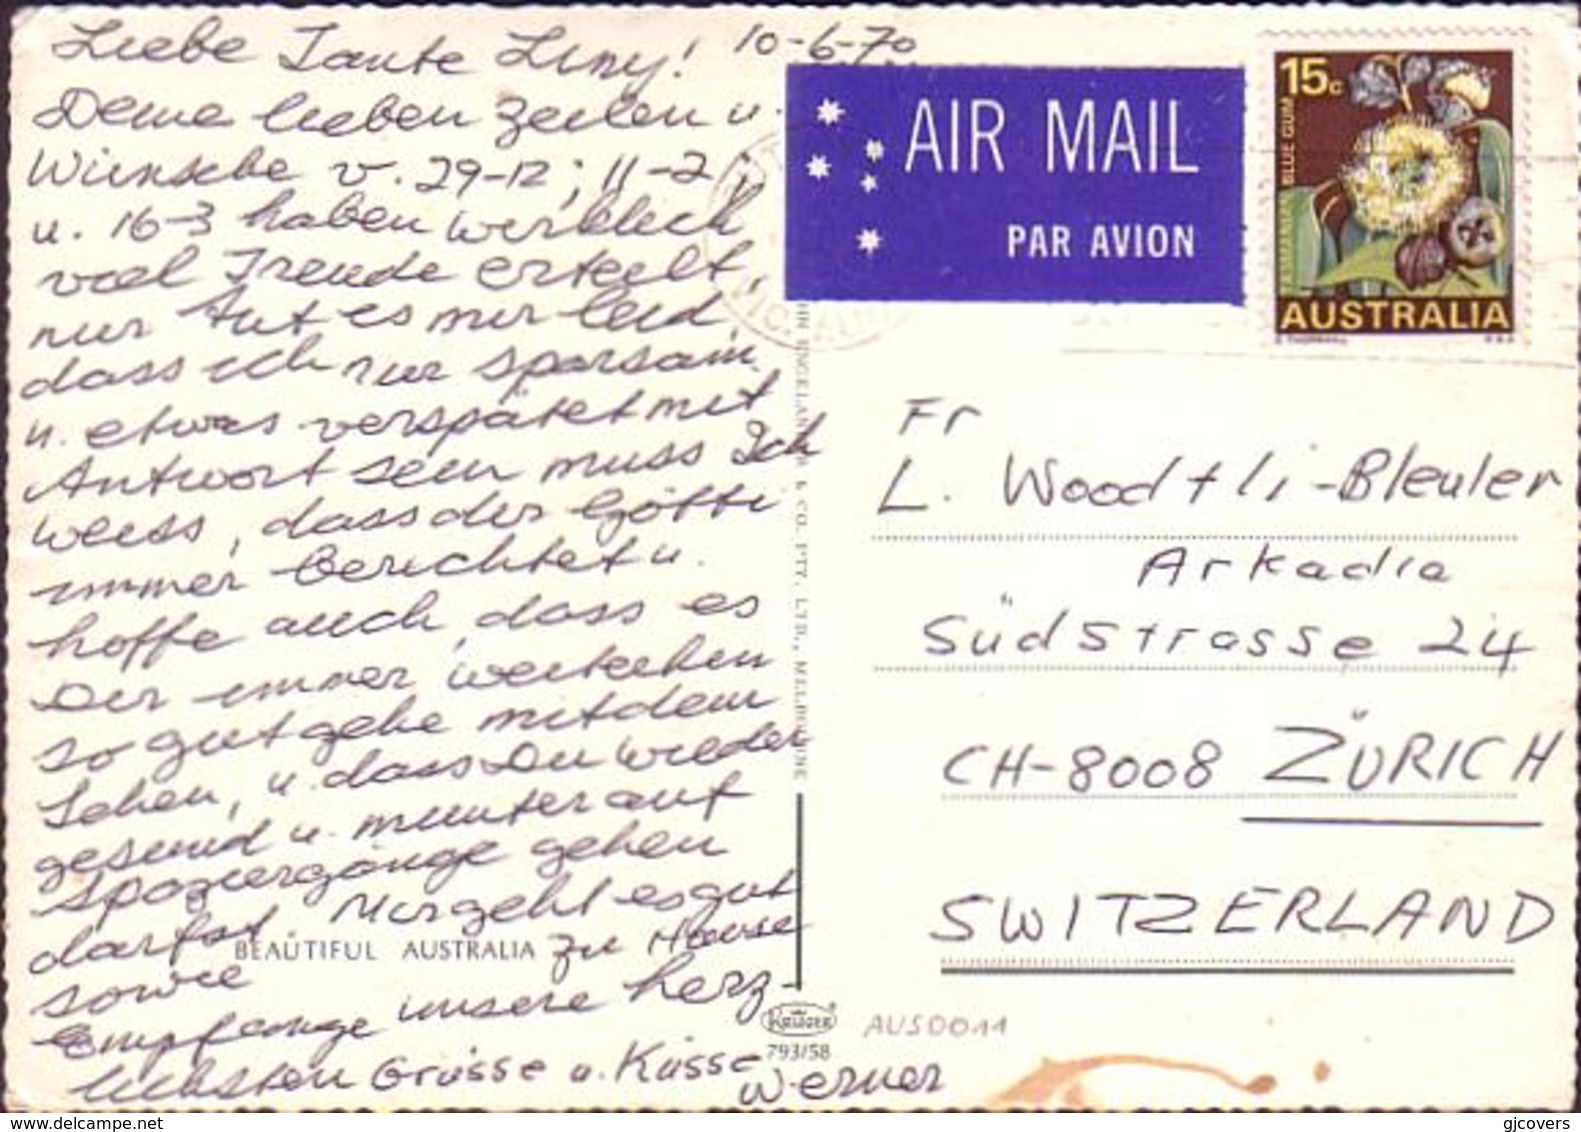 Liebe Tante Liny! 10-6-70
Deine lieben Zeilen u.
Wünsche v. 29-12; 11-2;
u. 16-3 haben wirklich
viel Freude erteilt,
nur tut es mir leid,
dass ich nur sparsam
u. etwas verspätet mit
Antwort sein muss Ich
weiss, dass der Götti
immer berichtet u.
hoffe auch, dass es
Dir immer weiterhin
so gut gehe mit dem
Sehen, u. dass Du wieder
gesund u. munter auf
Spaziergänge gehen
darfst Mir geht es gut
zu Hause
sowie
Empfange unsere herz-
lichsten Grüsse u. Küsse
Werner
BEAUTIFUL AUSTRALIA
& CO. PTY. LTD., MELBOURNE
KRÜGER
793/58
AUS0011
AIR MAIL
PAR AVION
15c
TASMANIAN BLUE GUM
AUSTRALIA
VIC. AUST
Fr
L. Woodtli-Bleuler
Arkadia
Südstrasse 24
CH-8008 ZÜRICH
SWITZERLAND
delcampe.net
gjcovers